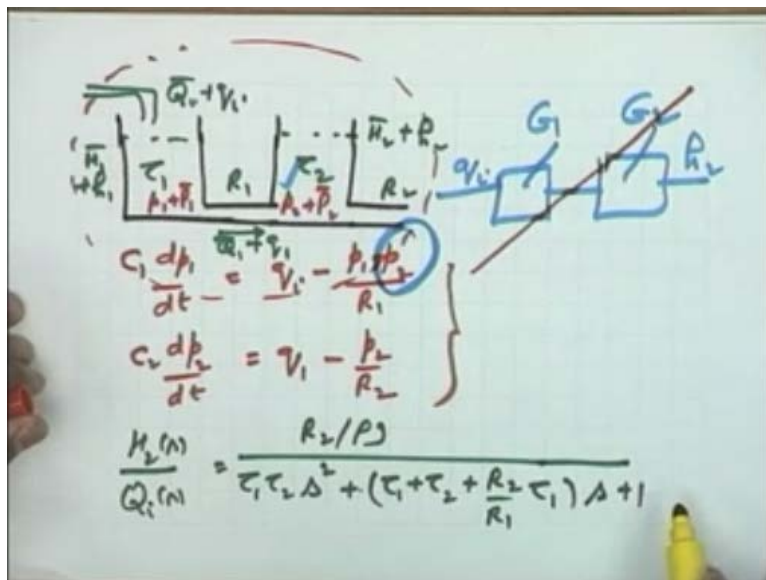 Q̄ᵢ+qᵢ
H̄₁
+h₁
τ₁
p₁+p̄₁
R₁
τ₂
p₂+p̄₂
H̄₂+h₂
R₂
Q̄₁+q₁
G₁
G₂
qᵢ
h₂
C₁ dp₁/dt = qᵢ - (p₁-p₂)/R₁
C₂ dp₂/dt = q₁ - p₂/R₂
H₂(s)/Qᵢ(s) = (R₂/ρg)/(τ₁τ₂s² + (τ₁+τ₂+(R₂/R₁)τ₁)s+1)